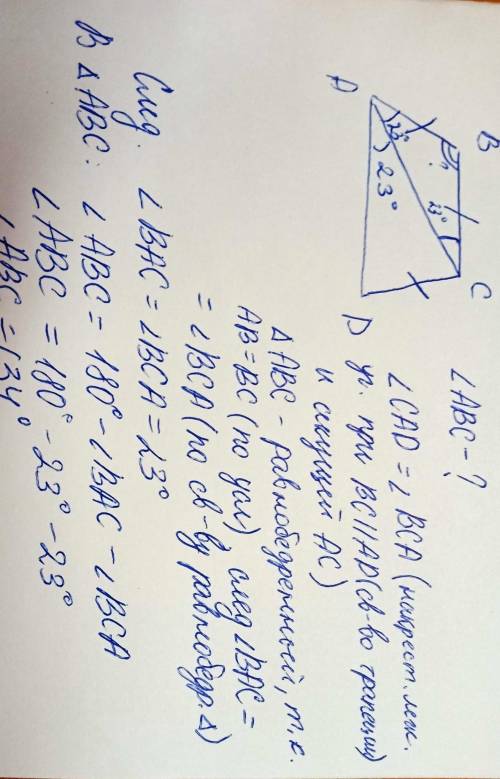 ∠ABC - ?
B
C
A
D
23°
23°
23°
?
∠CAD = ∠BCA (накрест. леж.
уг. при BC||AD (св-во трапеции)
и секущей AC)
∆ABC - равнобедренный, т.к.
AB = BC (по усл) след ∠BAC =
= ∠BCA (по св-ву равнобедр. ∆)
След. ∠BAC = ∠BCA = 23°
В ∆ABC: ∠ABC = 180° - ∠BAC - ∠BCA
∠ABC = 180° - 23° - 23°
∠ABC = 134°